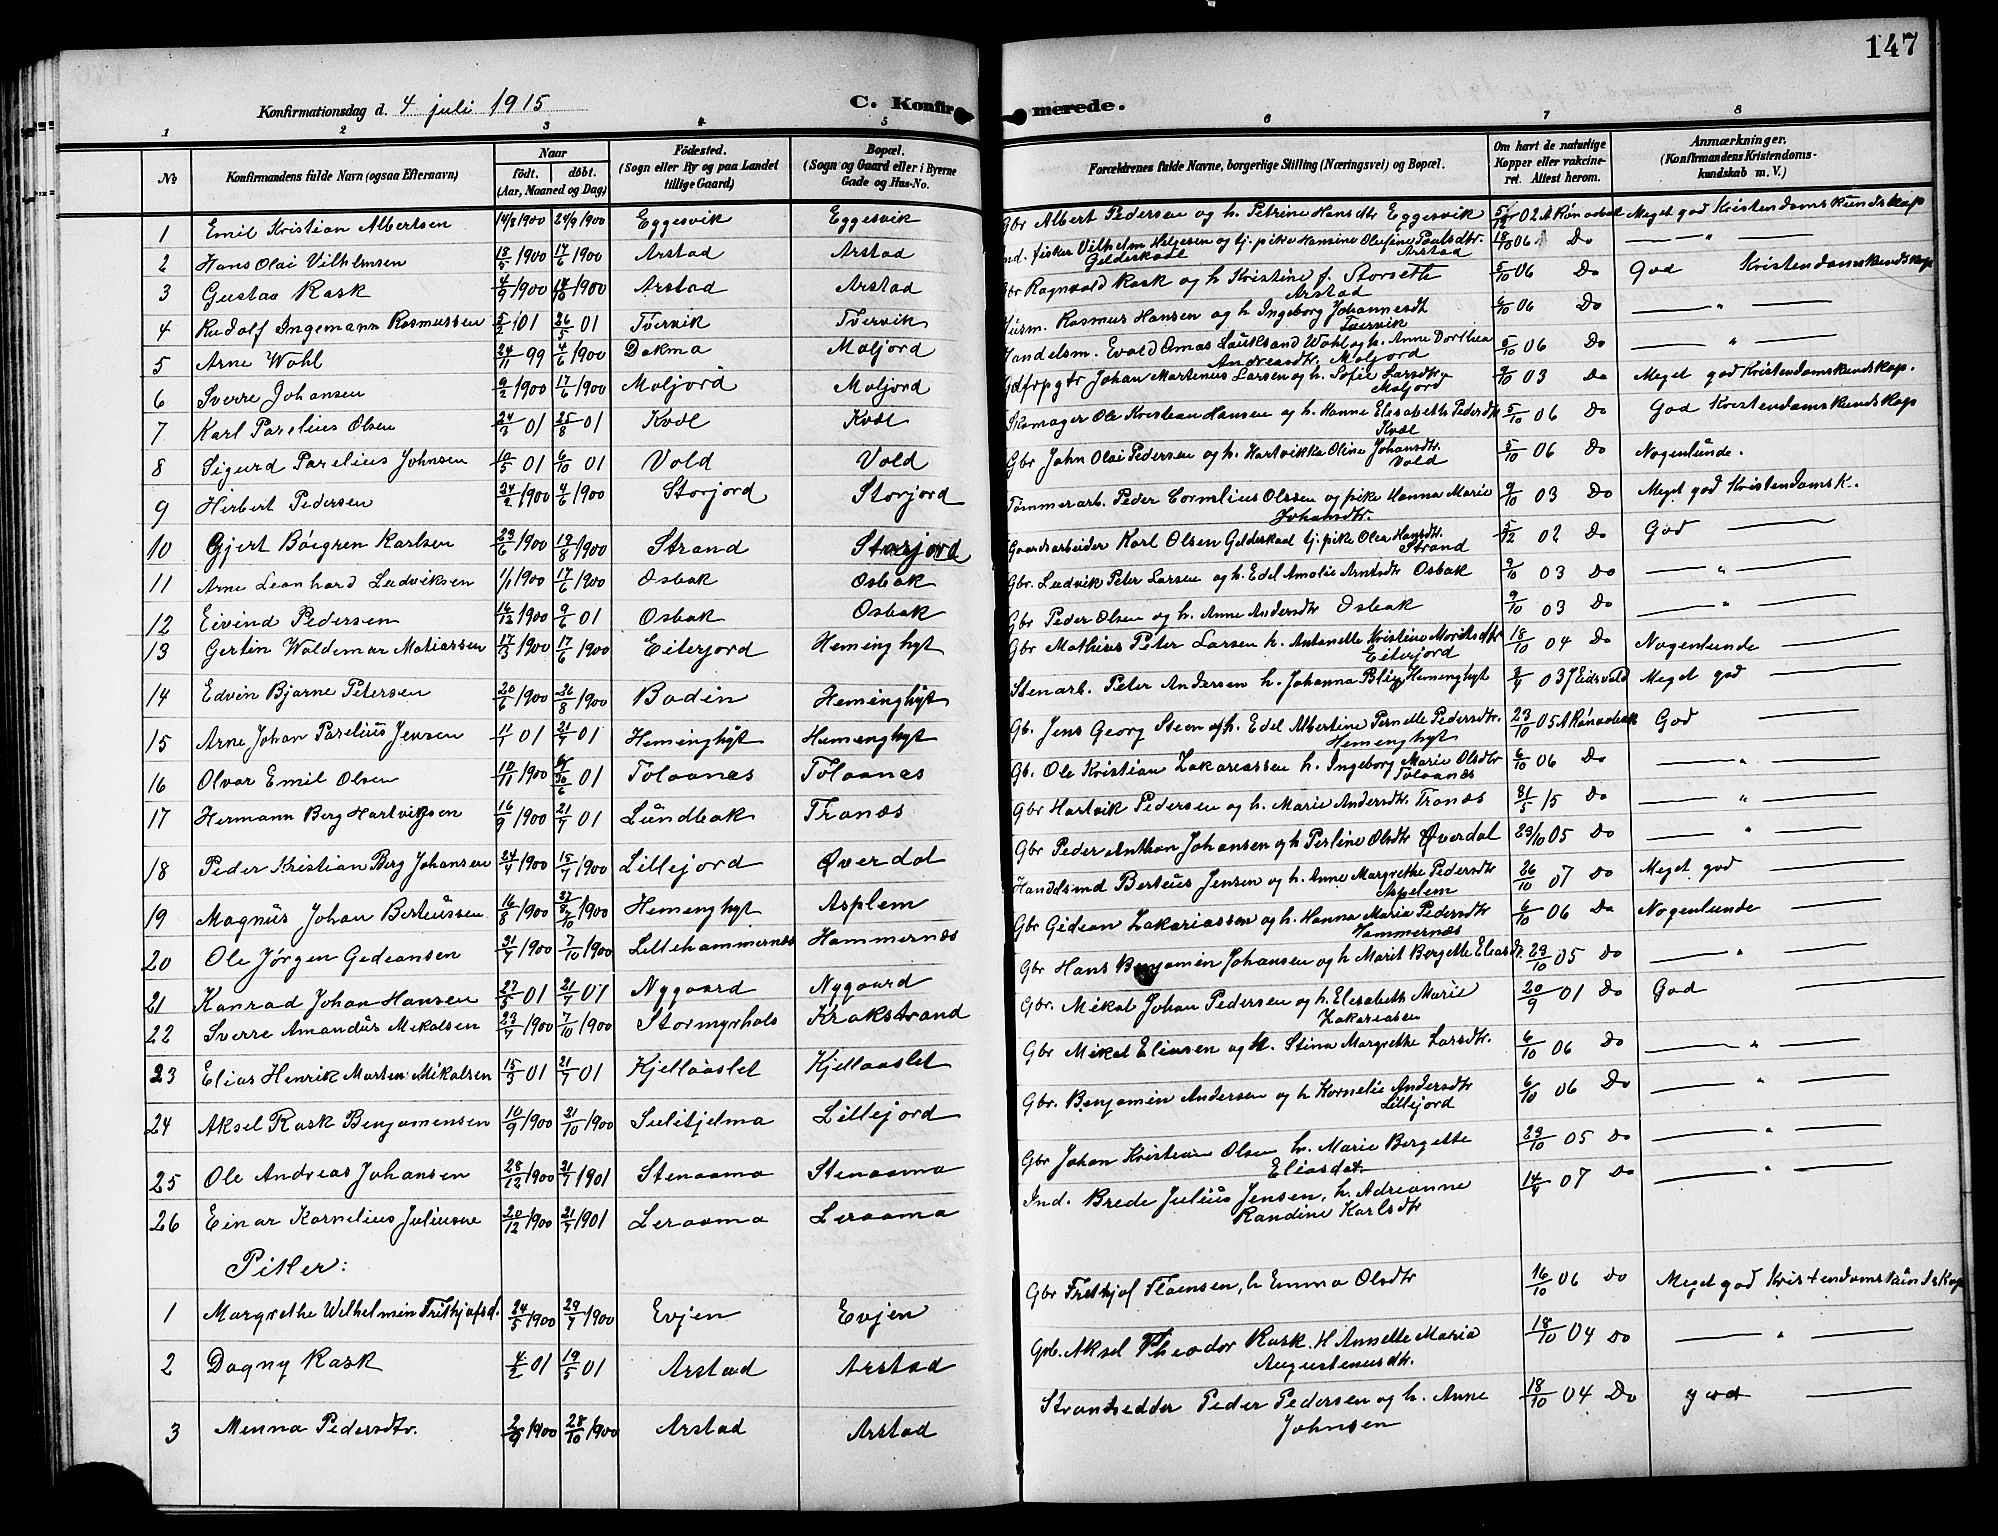 147
Konfirmationsdag d. 4 juli 1915 C. Konfirmerede.
1 2 3 4 5 6 7 8
No Konfirmandens fulde Navn (ogsaa Efternavn) Naar födt. döbt. (Aar, Maaned og Dag) Födested. (Sogn eller By og paa Landet tillige Gaard) Bopæl. (Sogn og Gaard eller i Byerne Gade og Hus-No. Forældrenes fulde Navne, borgerlige Stilling (Næringsvei) og Bopæl. Om havt de naturlige Kopper eller vakcineret. Attest herom. Anmærkninger. (Konfirmandens Kristendomskundskab m. V.)
1 Emil Kristian Albertsen 14/8 1900 24/9 1900 Eggesvik Eggesvik Gbr Albert Pedersen og h. Petrine Hansdtr Eggesvik 5/12 02 A Rönaabek Meget god Kristendomskundskap
2 Hans Olai Vilhelmsen 18/5 1900 17/6 1900 Arstad Arstad Ind. fisker Vilhelm Helgesen og tj. pike Hansine Olufine Paulsdtr. Gildeskaal Arstad 18/10 06 Do — " —
3 Gustav Rask 4/9 1900 14/10 1900 Arstad Arstad Gbr Ragnvald Rask og h Kristine f. Storseth Arstad 5/10 06 Do God Kristendomskundskap
4 Rudolf Ingemann Rasmussen 5/2 01 26/5 01 Tvervik Tvervik Husm. Rasmus Hansen og h Ingeborg Johannesdt Tvervik 6/10 06 Do "
5 Arne Wahl 24/11 99 4/6 1900 Dokmo Moljord Handelsm. Evald Omas Lauksand Wahl og h. Anne Dorthea Andreasdtr, Moljord 5/10 06 Do — " —
6 Sverre Johansen 9/2 1900 17/6 1900 Moljord Moljord Johan Martinus Larsen og h. Sofie Larsdtr Moljord 9/10 03 Do Meget god Kristendomskundskap.
7 Karl Parelius Olsen 24/3 01 25/8 01 Kvæl Kvæl Skomager Ole Kristian Hansen og h. Hanne Elisabeth Pedersdtr Kvæl 5/10 06 Do God Kristendomskundskap
8 Sigurd Parelius Johnsen 10/5 01 6/10 01 Vold Vold Gbr John Olai Pedersen og h. Hartvikka Oline Johansdtr. Vold 5/10 06 Do Nogenlunde.
9 Herbert Pedersen 24/2 1900 4/6 1900 Storjord Storjord Tömmerarb. Peder Cornelius Olssen og pike Hanna Marie Johansdtr. 9/10 03 Do Meget god Kristendomsk.
10 Gjert Böegren Karlsen 23/6 1900 19/8 1900 Strand Storjord Gaardsarbeider Karl Olsen Gildeskaal tj. pike Olea Hansdtr. Strand 5/12 02 Do God —
11 Arne Leonhard Ludviksen 1/1 1900 17/6 1900 Osbak Osbak Gbr. Ludvik Peter Larsen og h. Edel Amalie Arntsdtr Osbak 9/10 03 Do — " —
12 Eivind Pedersen 16/12 1900 9/6 01 Osbak Osbak Gbr Peder Olsen og h. Anne Andersdtr Osbak 9/10 03 Do — " —
13 Gertin Waldemar Matiassen 17/3 1900 17/6 1900 Eiterjord Heminghyt Gbr Mathias Peter Larsen h. Antonette Kristine Moritsdtr Eiterjord 18/10 04 Do Nogenlunde —
14 Edvin Bjarne Petersen 20/6 1900 26/8 1900 Bodin Hemenghyt Stenarb. Peter Andersen h. Johanna Blix Hemenghyt 03 J Eidsvold Meget god —
15 Arne Johan Parelius Jensen 11/1 01 21/7 01 Hemenghyt Hemenghyt Gb. Jens Georg Steen og h. Edel Albertine Pernelle Pedersdtr. Hemenghyt 23/10 05 A Rönaabek God —
16 Olvar Emil Olsen 10/11 1900 30/6 01 Tolaanes Tolaanes Gb. Ole Kristian Zakariassen h. Ingeborg Marie Olsdtr Tolaanes 6/10 06 Do — " —
17 Hermann Berg Hartviksen 16/9 1900 21/7 01 Lundbak Tranæs Gbr Hartvik Pedersen og h. Marie Andersdtr. Tranæs 31/5 15 Do — " —
18 Peder Kristian Berg Johansen 24/4 1900 15/7 1900 Lillejord Øverdal Gbr Peder Anthon Johansen og h Perline Olsdtr Øverdal 23/10 05 Do — " —
19 Magnus Johan Berteussen 16/8 1900 1900 Hemenghyt Asplem Handelsmd Berteus Jensen og h. Anne Margrethe Pedersdtr Aspelem 26/10 07 Do Meget god —
20 Ole Jørgen Gedeonsen 31/7 1900 7/10 1900 Lillehammernæs Hammernæs Gbr Gideon Zakariassen og h. Hanna Maria Pedersdtr Hammernæs 6/10 06 Do Nogenlunde —
21 Konrad Johan Hansen 27/5 01 21/7 01 Nygaard Nygaard Gbr Hans Benjamin Johansen og h Marit Bergette Eliasdtr. 23/10 05 Do — " —
22 Sverre Amandus Mikalsen 23/7 1900 7/10 1900 Stormyrhals Krokstrand Gbr. Mikal Johan Pedersen og h. Elisabeth Marie Zakariasen 20/9 01 Do God —
23 Elias Henrik Morten Mikalsen 15/3 01 21/7 01 Kjellaaslet Kjellaaslet Gbr Mikal Eliasen og h. Stina Margrethe Larsdtr. 6/10 06 Do — " —
24 Aksel Rask Benjamensen 10/9 1900 21/10 1900 Sulitjelma Lillejord Gbr. Benjamin Andersen og h Kornelie Andersdtr Lillejord 6/10 06 Do — " —
25 Ole Andreas Johansen 28/12 1900 21/7 1901 Stenaamo Stenaamo Gbr Johan Kristian Olsen h. Marie Bergette Eliasdatr 23/10 05 Do — " —
26 Einar Kornelius Juliusen 20/12 1900 21/7 1901 Leraamo Leraamo Ind. Brede Julius Jensen, h. Adrianne Randine Karlsdtr 14/4 07 Do — " —
Piker:
1 Margrethe Wilhelmin Frithjofsd. 24/5 1900 29/7 1900 Evjen Evjen Gbr Frithjof Floensen, h Emma Olsdtr 16/10 06 do Meget god Kristendomskundskap
2 Dagny Rask 4/2 01 19/5 01 Arstad Arstad Gb. Aksel Theodor Rask. H Annette Maria Augustinusdtr. 18/10 04 Do — " —
3 Menna Pedersdtr. 2/9 1900 28/10 1900 Arstad Arstad Strandsedder Peder Pedersen og h. Anne Johnsen 18/10 04 Do god —